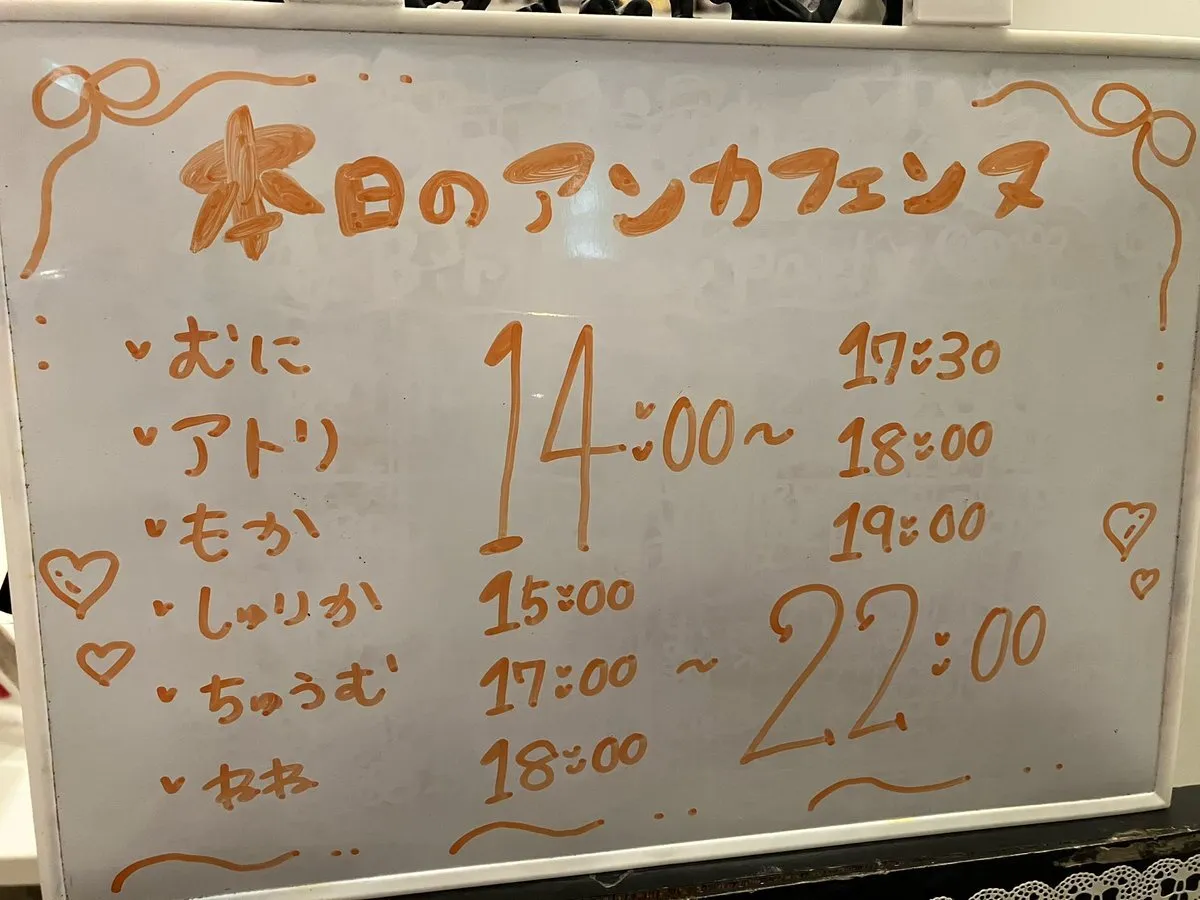 本日のアンカフェンヌ
むに 14:00～ 17:30
アトリ 18:00
もか 19:00
しゅりか 15:00 ～ 22:00
ちゅうむ 17:00
ねね 18:00